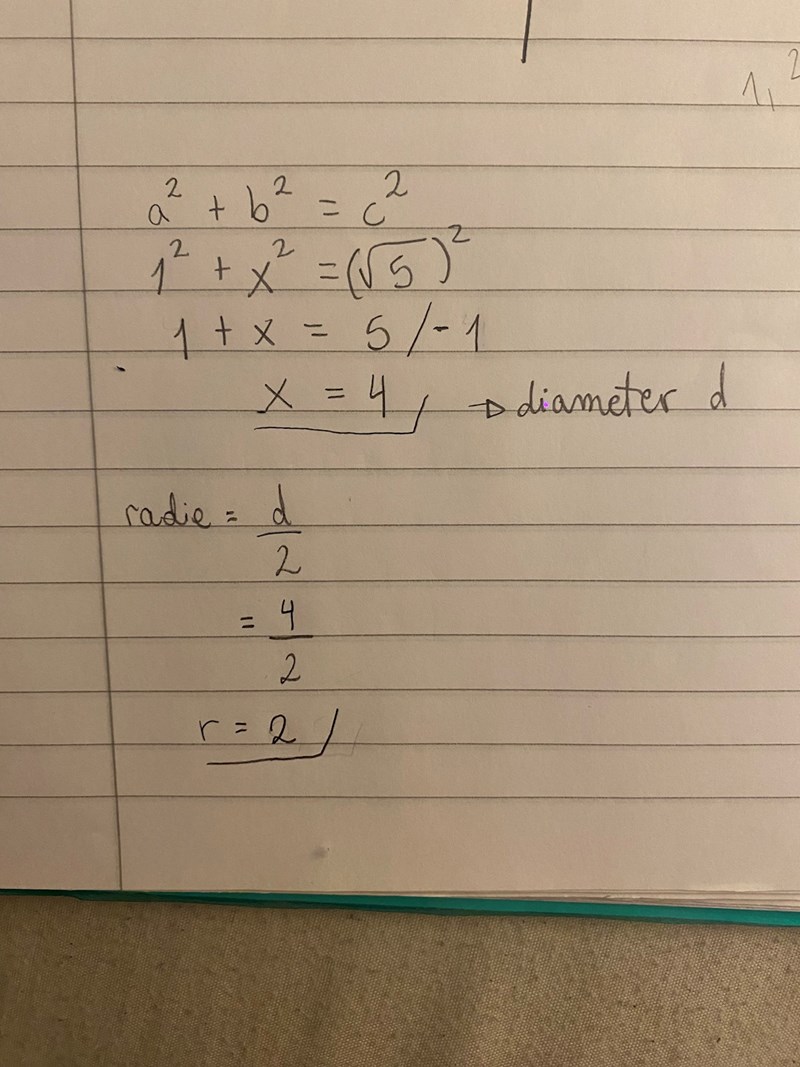 1,²
a² + b² = c²
1² + x² = (√5)²
1 + x = 5 /-1
x = 4 → diameter d
radie = d/2
= 4/2
r = 2